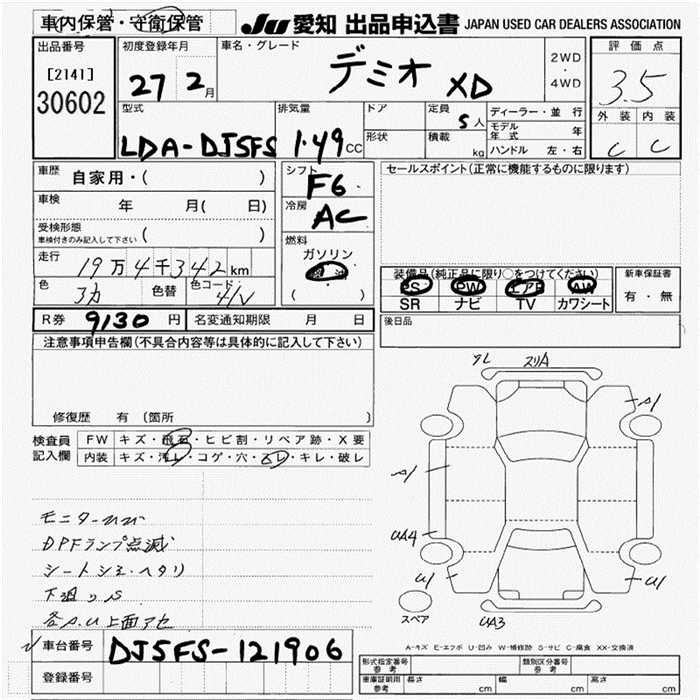 車内保管・守衛保管 JU 愛知 出品申込書 JAPAN USED CAR DEALERS ASSOCIATION
出品番号 初度登録年月 車名・グレード 2WD・4WD 評価点
[2141] 27 2月 デミオ XD 3.5
30602 型式 排気量 ドア 定員 5人 ディーラー・並行 外装 内装
LDA-DJ5FS 1.49cc 形状 積載 kg モデル年式 年 C C
ハンドル 左・右
車歴 自家用・( ) シフト F6 セールスポイント(正常に機能するものに限ります)
車検 年 月( 日) 冷房 AC
受検形態 ( )
車検付きのみ記入して下さい
燃料 ガソリン
軽油
( )
走行 19万4千342km 装備品(純正品に限り○をつけてください) 新車保証書
色 色替 色コード 41V PS PW エアB AW 有・無
SR ナビ TV カワシート
R券 9130円 名変通知期限 月 日 後日品
注意事項申告欄(不具合内容等は具体的に記入して下さい)
修復歴 有 (箇所
検査員記入欄 FW キズ・飛石・ヒビ割・リペア跡・X要
内装 キズ・汚レ・コゲ・穴・スレ・キレ・破レ
モニターヒビ
DPFランプ点滅
シートシミ・ヘタリ
下廻りS
上面アセ
スリA
A1
A1
UA4
U1
U1
スペア
UA3
車台番号 DJ5FS-121906
登録番号
A-キズ E-エクボ U-凹み W-補修跡 S-サビ C-腐食 XX-交換済
形式指定番号 参考 類別区分番号 参考
車庫証明用 参考 長さ cm 幅 cm 高さ cm